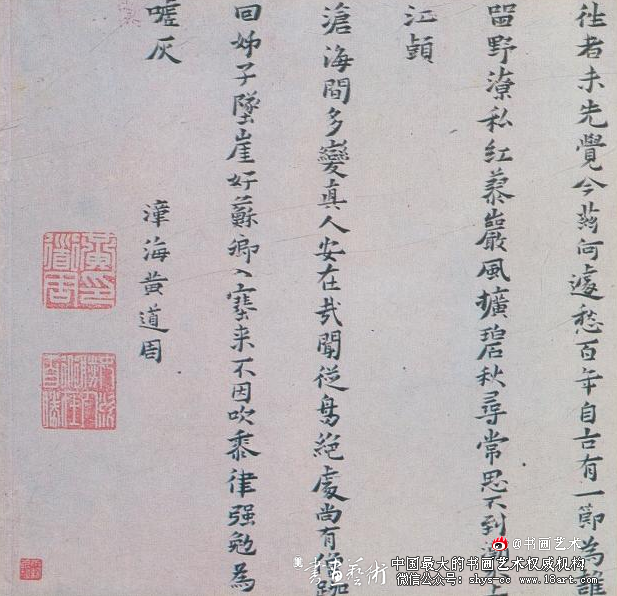 往者未先覺今茲何處愁百年自古有一節為誰
留野潦私紅蓼巖風擴碧秋尋常思不到潮
江頭
滄海間多變真人安在哉聞從鳥絕處尚有
回姊子墜崖好蘇卿入塞来不因吹黍律强勉為
噓灰
漳海黄道周
黃道周印
@书画艺术
書畫藝術
中国最大的书画艺术权威机构
微信公众号：shys-cc www.18art.com